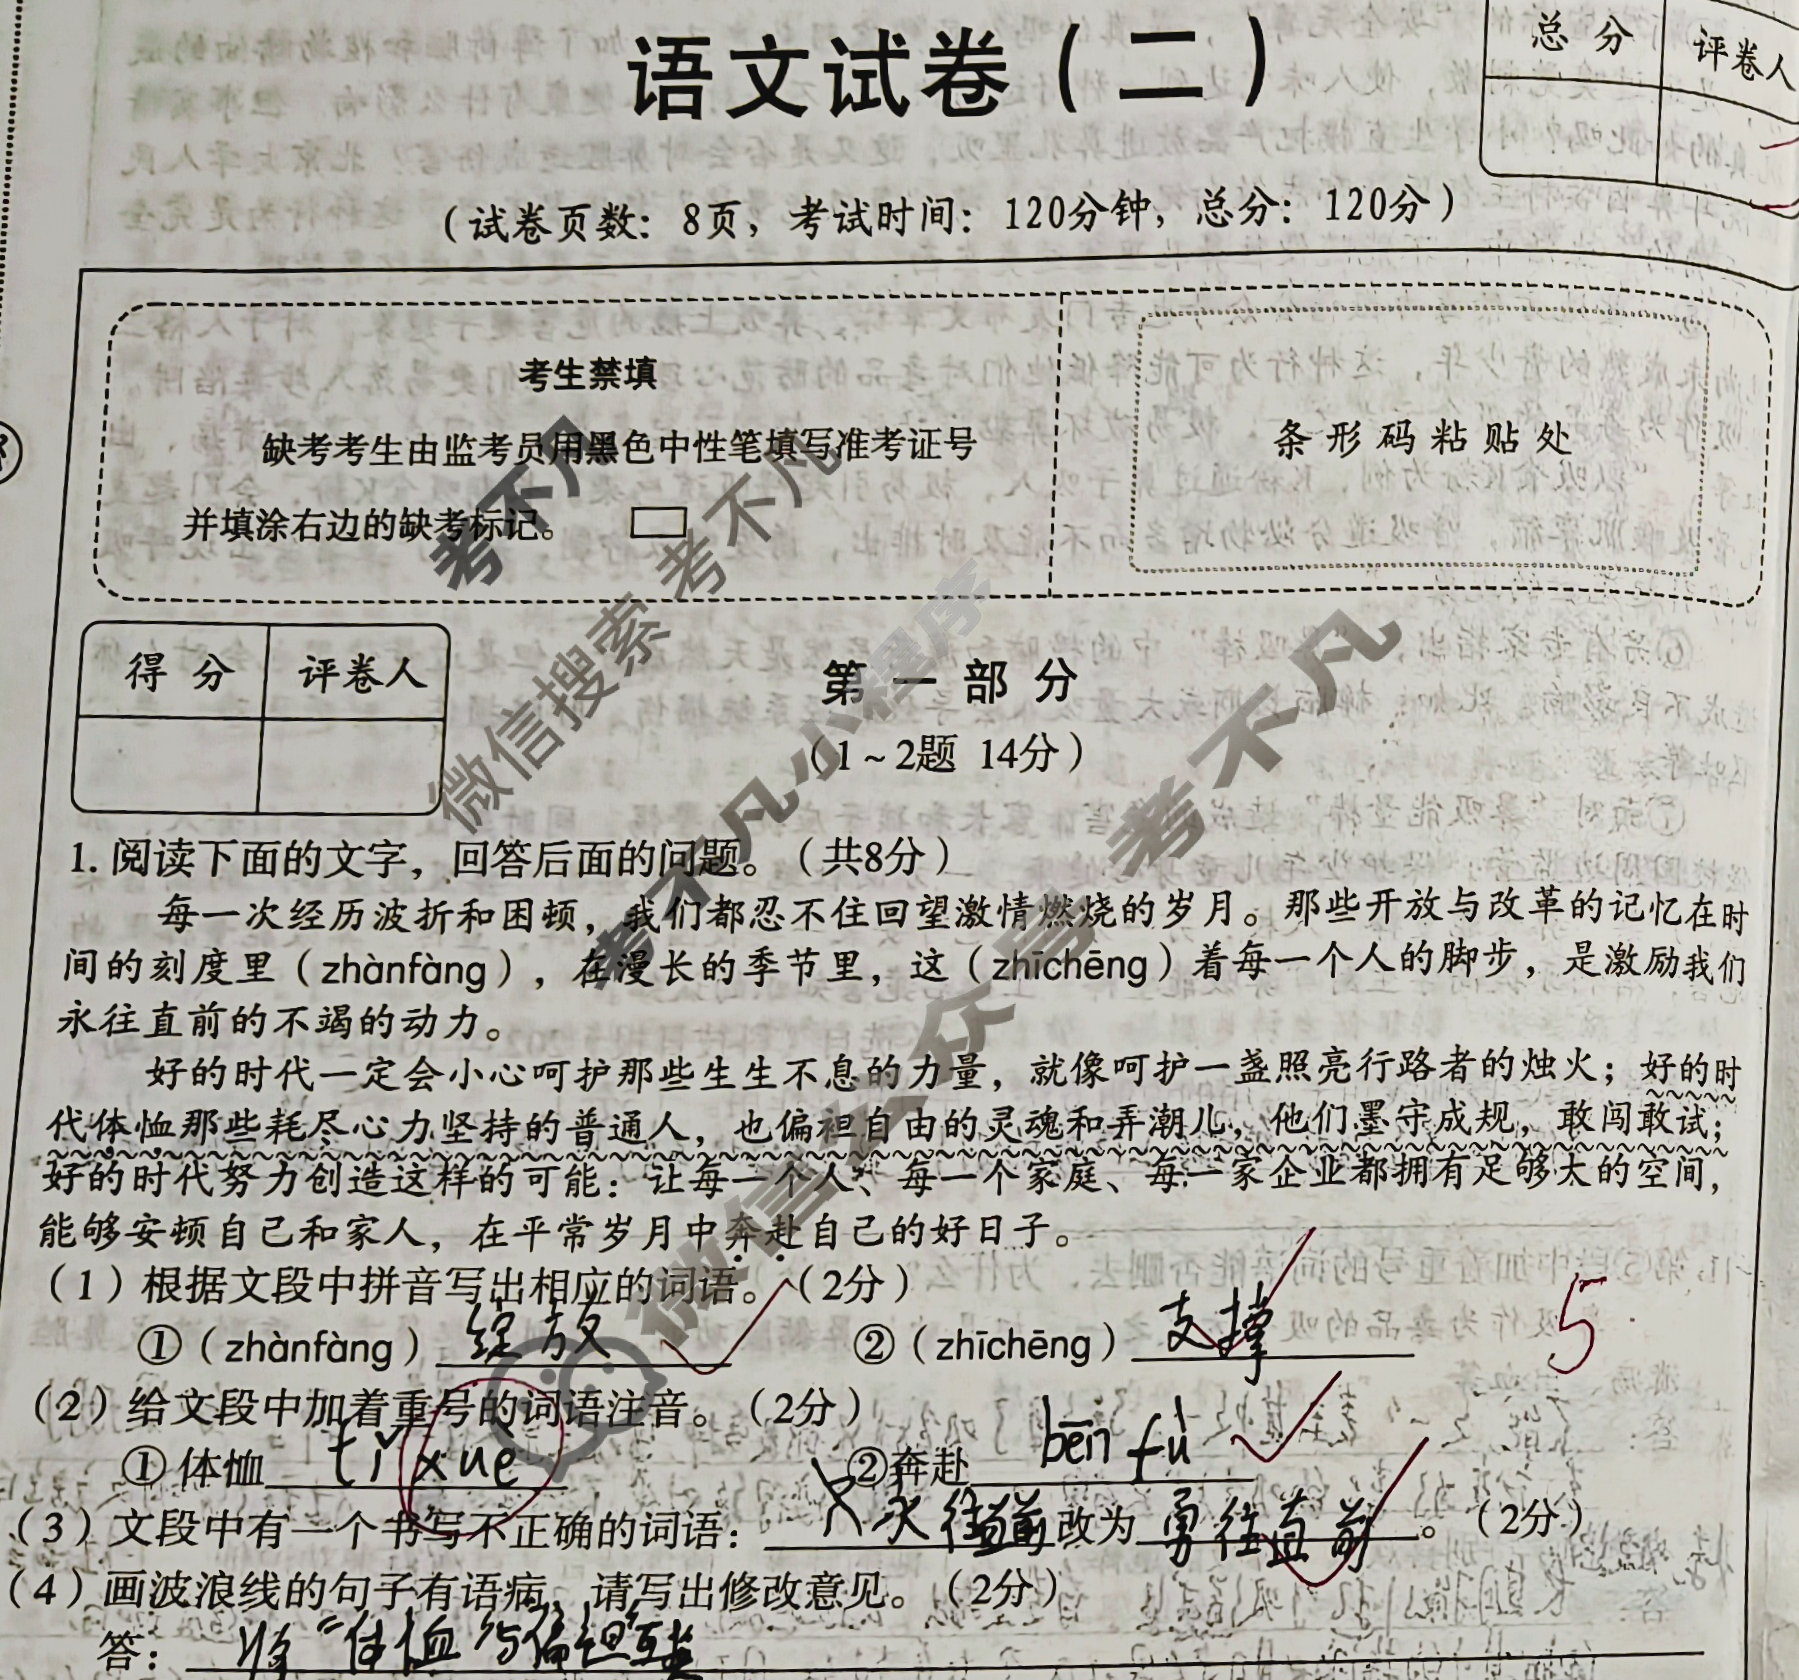 语文试卷(二)
总分 评卷人
(试卷页数: 8页, 考试时间: 120分钟, 总分: 120分)
考生禁填
缺考考生由监考员用黑色中性笔填写准考证号
并填涂右边的缺考标记。
条形码粘贴处
得分 评卷人
第一部分
(1~2题 14分)
1. 阅读下面的文字, 回答后面的问题。(共8分)
每一次经历波折和困顿, 我们都忍不住回望激情燃烧的岁月。那些开放与改革的记忆在时
间的刻度里(zhànfàng), 在漫长的季节里, 这(zhīchēng)着每一个人的脚步, 是激励我们
永往直前的不竭的动力。
好的时代一定会小心呵护那些生生不息的力量, 就像呵护一盏照亮行路者的烛火; 好的时
代体恤那些耗尽心力坚持的普通人, 也偏袒自由的灵魂和弄潮儿, 他们墨守成规, 敢闯敢试;
好的时代努力创造这样的可能: 让每一个人、每一个家庭、每一家企业都拥有足够大的空间,
能够安顿自己和家人, 在平常岁月中奔赴自己的好日子。
(1) 根据文段中拼音写出相应的词语。(2分)
①(zhànfàng) 绽放 ②(zhīchēng) 支撑
5
(2) 给文段中加着重号的词语注音。(2分)
①体恤 tǐ xuè ②奔赴 bēn fù
(3) 文段中有一个书写不正确的词语: 永往直前 改为 勇往直前。(2分)
(4) 画波浪线的句子有语病, 请写出修改意见。(2分)
答: 将"体恤与偏袒互换
考不凡
微信搜索 考不凡
考不凡小程序
微信公众号 考不凡